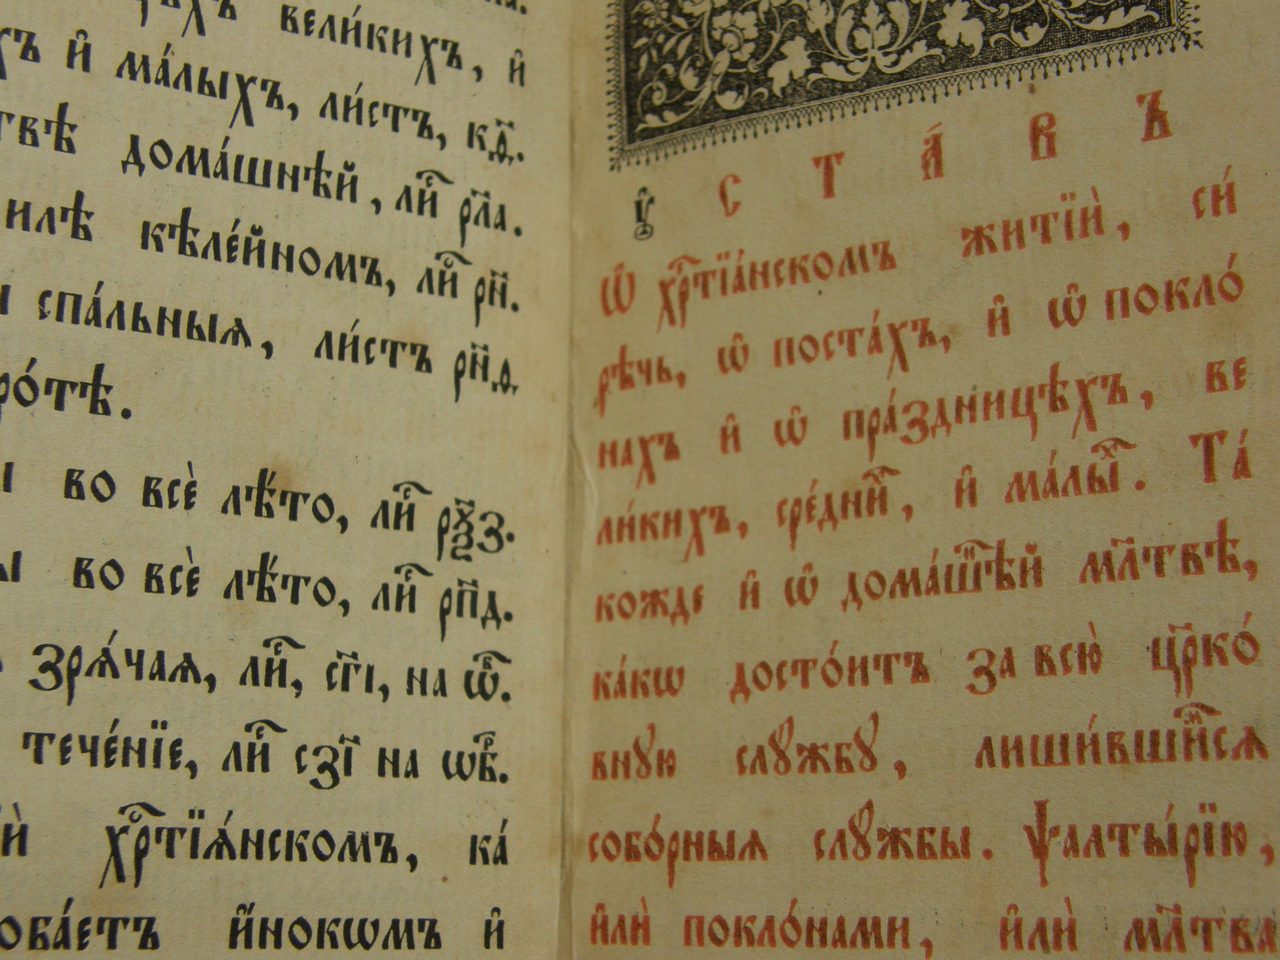 вели́кихъ, и҆
и҆ ма́лыхъ, ли́стъ, к҃ѳ.
дома́шнѣй, ли́ⷭ҇ рл҃а.
кѣле́йномъ, ли́ⷭ҇ рн҃.
спа́льныѧ, ли́стъ рн҃ѳ
во всѐ лѣ́то, ли́ⷭ҇
во всѐ лѣ́то, ли́ⷭ҇ рп҃д.
зрѧ́чаѧ, ли́ⷭ҇, сг҃і, на ѡ҆б̾.
тече́нїе, ли́ⷭ҇ сзі҃ на ѡб̾.
хрⷭ҇тїѧ́нскомъ, ка́
и҆́нокѡмъ и҆
ᲂу҆ста́въ
ѡ҆ хрⷭ҇тїа́нскомъ житїѝ, си́
рѣчь, ѡ҆ поста́хъ, и҆ ѡ҆ покло́
нахъ и҆ ѡ҆ пра́здницѣхъ, ве
ли́кихъ, сре́дниⷯ, и҆ ма́лыⷯ. Та́
кожде и҆ ѡ҆ дома́шⷩ҇ѣй мл҃твѣ,
ка́кѡ досто́итъ за всю̀ цр҃ко́
вную слꙋжбꙋ, лиши́вшиⷨсѧ
собо́рныѧ слꙋжбы. ѱалты́рїю,
и҆лѝ покло́нами, и҆лѝ мл҃тва